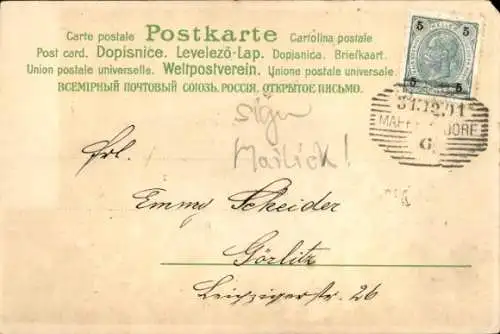 Carte postale Postkarte Cartolina postale
Post card. Dopisnice. Levelező-Lap. Dopisnica. Briefkaart.
Union postale universelle. Weltpostverein. Unione postale universale.
ВСЕМІРНЫЙ ПОЧТОВЫЙ СОЮЗЪ. РОССІЯ. ОТКРЫТОЕ ПИСЬМО.
5 5
5 5
31.12.01
6
sign
Mailick!
Frl.
Emmy Scheider
Görlitz
Leipzigerstr. 26